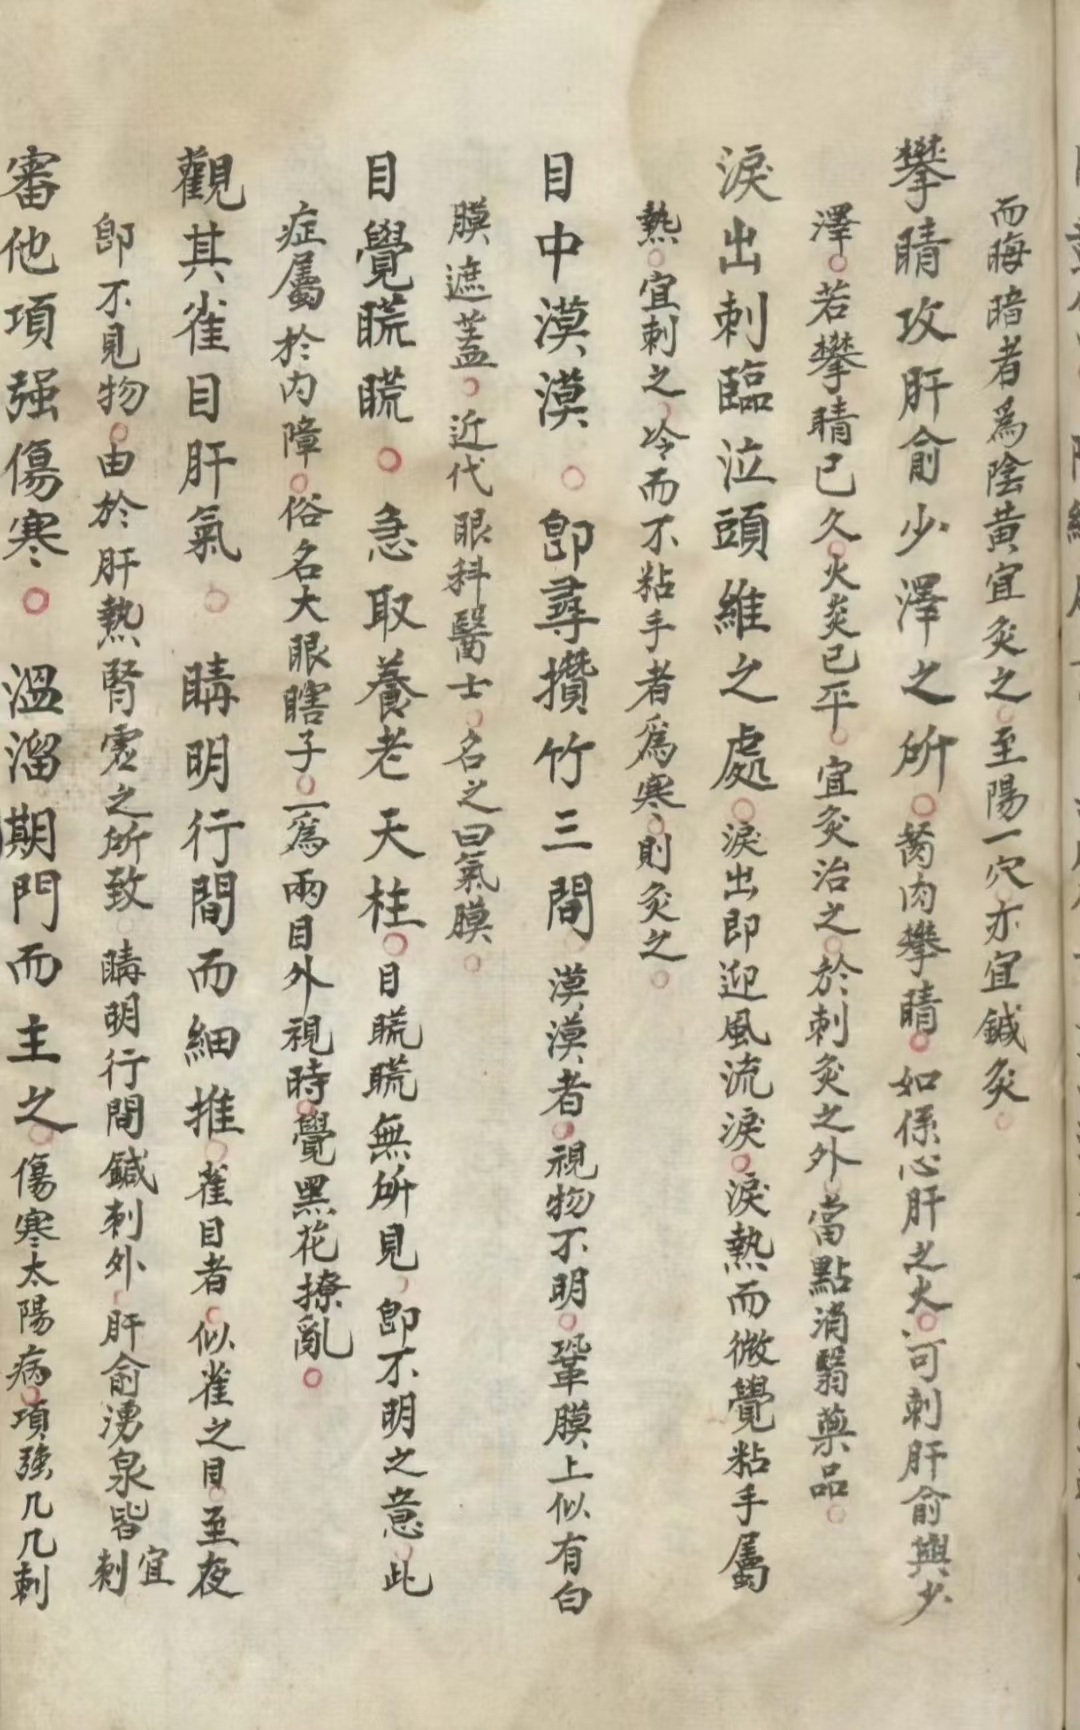 而晦暗者爲陰黄宜灸之○至陽一穴亦宜鍼灸○
攀睛攻肝俞少澤之所○胬肉攀睛○如係心肝之火○可刺肝俞與少
澤○若攀睛已久○火炎已平○宜灸治之○於刺灸之外○當點消翳藥品○
淚出刺臨泣頭維之處○淚出即迎風流淚○淚熱而微覺粘手屬
熱○宜刺之○冷而不粘手者爲寒○則灸之○
目中漠漠○卽尋攢竹三間 漠漠者○視物不明○鞏膜上似有白
膜遮蓋○近代眼科醫士○名之曰氣膜○
目覺䀮䀮○急取養老天柱○目䀮䀮無所見○卽不明之意○此
症屬於内障○俗名大眼瞎子○一爲兩目外視時○覺黑花撩亂○
觀其雀目肝氣○睛明行間而細推○雀目者○似雀之目○至夜
卽不見物○由於肝熱腎虛之所致○睛明行間鍼刺外○肝俞湧泉皆宜刺
審他項强傷寒○温溜期門而主之○傷寒太陽病○項強几几刺